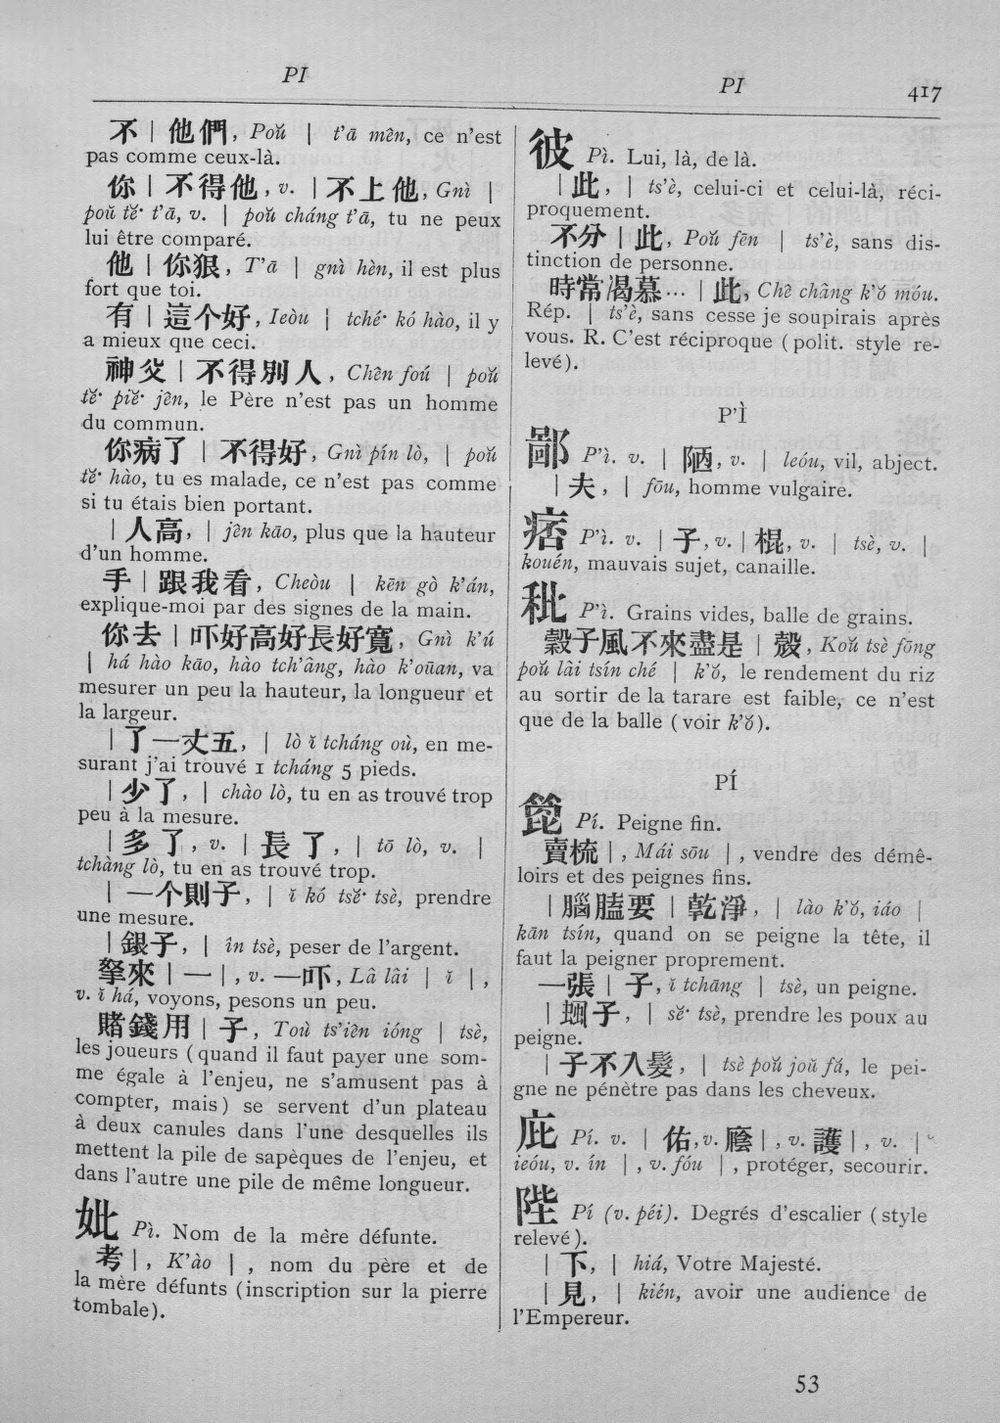 PI
PI
417
不 | 他們, Poŭ | t'ā mên, ce n'est
pas comme ceux-là.
你 | 不得他, v. | 不上他, Gnì |
poŭ tĕ· t'ā, v. | poŭ cháng t'ā, tu ne peux
lui être comparé.
他 | 你狠, T'ā | gnì hèn, il est plus
fort que toi.
有 | 這个好, Ieòu | tché· kó hào, il y
a mieux que ceci.
神父 | 不得別人, Chên foú | poŭ
tĕ· piĕ· jên, le Père n'est pas un homme
du commun.
你病了 | 不得好, Gnì pín lò, | poŭ
tĕ· hào, tu es malade, ce n'est pas comme
si tu étais bien portant.
| 人高, | jên kāo, plus que la hauteur
d'un homme.
手 | 跟我看, Cheòu | kēn gò k'án,
explique-moi par des signes de la main.
你去 | 吓好高好長好寬, Gnì k'ú
| há hào kāo, hào tch'âng, hào k'oūan, va
mesurer un peu la hauteur, la longueur et
la largeur.
| 了一丈五, | lò ĭ tcháng où, en me-
surant j'ai trouvé 1 tcháng 5 pieds.
| 少了, | chào lò, tu en as trouvé trop
peu à la mesure.
| 多了, v. | 長了, | tō lò, v. |
tchàng lò, tu en as trouvé trop.
| 一个則子, | ĭ kó tsĕ· tsè, prendre
une mesure.
| 銀子, | în tsè, peser de l'argent.
拏來 | 一 |, v. 一吓, Lâ lâi | ĭ |,
v. ĭ há, voyons, pesons un peu.
賭錢用 | 子, Toù ts'iên ióng | tsè,
les joueurs (quand il faut payer une som-
me égale à l'enjeu, ne s'amusent pas à
compter, mais) se servent d'un plateau
à deux canules dans l'une desquelles ils
mettent la pile de sapèques de l'enjeu, et
dans l'autre une pile de même longueur.
妣 Pì. Nom de la mère défunte.
考 |, K'ào |, nom du père et de
la mère défunts (inscription sur la pierre
tombale).
彼 Pì. Lui, là, de là.
| 此, | ts'è, celui-ci et celui-là, réci-
proquement.
不分 | 此, Poŭ fēn | ts'è, sans dis-
tinction de personne.
時常渴慕… | 此, Chê châng k'ŏ móu.
Rép. | ts'è, sans cesse je soupirais après
vous. R. C'est réciproque (polit. style re-
levé).
P'Ì
鄙 P'ì. v. | 陋, v. | leóu, vil, abject.
| 夫, | fōu, homme vulgaire.
痞 P'ì. v. | 子, v. | 棍, v. | tsè, v. |
kouén, mauvais sujet, canaille.
秕 P'ì. Grains vides, balle de grains.
穀子風不來盡是 | 殼, Koŭ tsè fōng
poŭ lâi tsín ché | k'ŏ, le rendement du riz
au sortir de la tarare est faible, ce n'est
que de la balle (voir k'ŏ).
PÍ
篦 Pí. Peigne fin.
賣梳 |, Mái sōu |, vendre des démê-
loirs et des peignes fins.
| 腦䐦要 | 乾淨, | lào k'ŏ, iáo |
kān tsín, quand on se peigne la tête, il
faut la peigner proprement.
一張 | 子, ĭ tchāng | tsè, un peigne.
| 子, | sĕ· tsè, prendre les poux au
peigne.
| 子不入髮, | tsè poŭ joŭ fá, le pei-
gne ne pénètre pas dans les cheveux.
庇 Pí. v. | 佑, v. 廕 |, v. 護 |, v. |
ieóu, v. ín |, v. fóu |, protéger, secourir.
陛 Pí (v. péi). Degrés d'escalier (style
relevé).
| 下, | hiá, Votre Majesté.
| 見, | kién, avoir une audience de
l'Empereur.
53